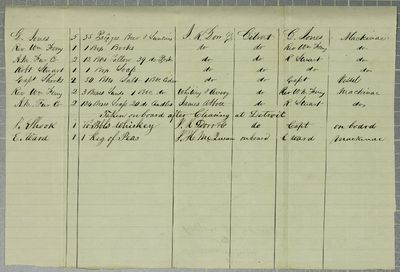 G. Jones 5 35 Bridges Beer & Sundries J. R. Dorr & Co Detroit G. Jones Mackinac
Rev Wm Ferry 1 1 Box Books do do Rev Wm Ferry do
Am. Fur Co 2 12 Bbls Tallow 29 do Pork do do R Stuart do
Robt Stuart 1 1 Box Soap do do do do
Capt Shook 2 30 Bbls Salt 1 Bbl Cider do do Capt Vessel
Rev Wm Ferry 2 3 Boxes 1 Box do Whiting & Avery do Rev Wm Ferry Mackinac
Am. Fur Co 2 104 Boxes Soap 20 do Candles James Abbott do R. Stuart do
Taken on board after Clearing at Detroit
J. Shook 1 10 Bbls Whiskey J. R. Dorr & Co do Capt on board
E. Ward 1 1 Keg of Peas J. H. on board E Ward Mackinac